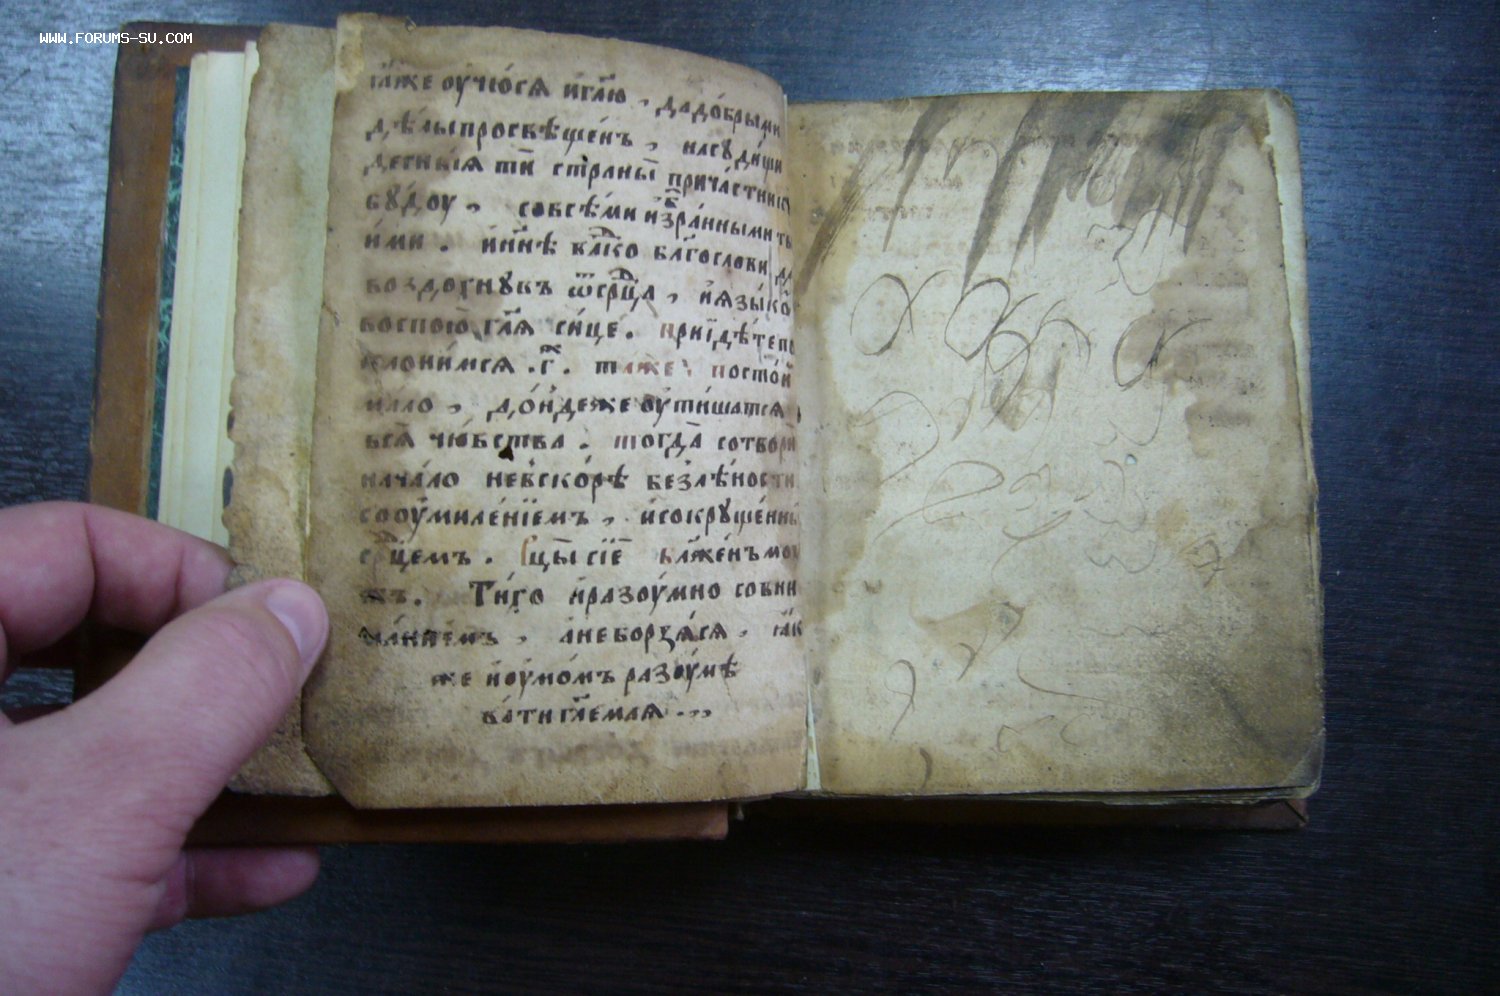 WWW.FORUMS-SU.COM
ꙗ҆́же оу҆чю́сѧ и҆гл҃ю , да до́брыми
дѣ́лы просвѣще́нъ , на сꙋди́щи
десны́ѧ ти̑ страны̀ прича́стникъ
бꙋ́дꙋ , со всѣ́ми и҆збра́нными тво
и́ми . и҆ н҃нѣ влⷣко блг҃ослови да
воздохнꙋвъ ѿ срⷣца , и҆ ѧ҆зы́комъ
воспою̀ гл҃ѧ си́це . прїидѣ́те по
клони́мсѧ .г҃. та́же посто́й
ма́ло , до́ндеже оу҆тиша́тсѧ
всѧ̑ чю́вства . тогда̀ сотвори̑
нача́ло не вско́рѣ без лѣ́ности
со оу҆миле́нїемъ , и҆ сокрꙋше́ннымъ
срⷣцемъ . Рцы̀ сїѐ бл҃же́нъ мꙋ
жъ . Ти́го и҆ разоу́мно со вни
ма́нїемъ , а҆ не боря́сѧ , ꙗ҆́ко
же и҆ оу҆мо́мъ разоумѣ
вати гл҃емаѧ .